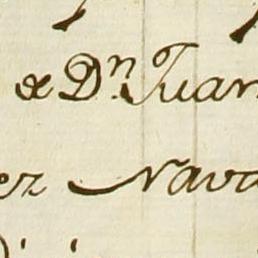 de Dn. Juan
ez Nava